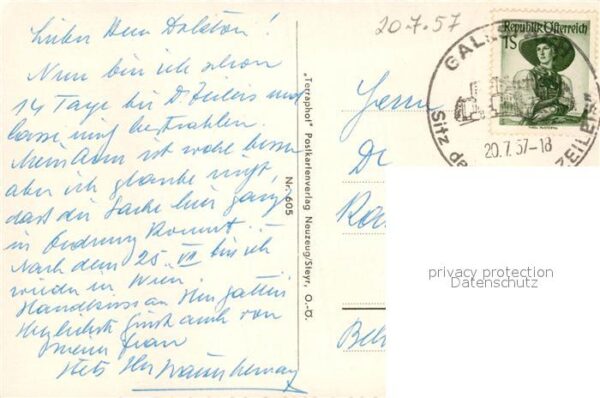 20.7.57
Lieber Herr Doktor!
Nun bin ich schon
14 Tage bei Dr Zeileis und
lasse mich bestrahlen.
Mein Arm ist wohl besser
aber ich glaube nicht,
dass die Sache hier ganz
in Ordnung kommt.
Nach dem 25. VII bin ich
wieder in Wien.
Handküsse an Ihre Gattin
Herzlichst Grüsst auch von
meiner Frau
stets Ihr
"Terraphot" Postkartenverlag Neuzeug/Steyr, O.-Ö.
Nr. 605
Republik Österreich
1S
GAL
Sitz de
ZEILEIS"
20.7.57-18
Herrn
D
privacy protection
Datenschutz